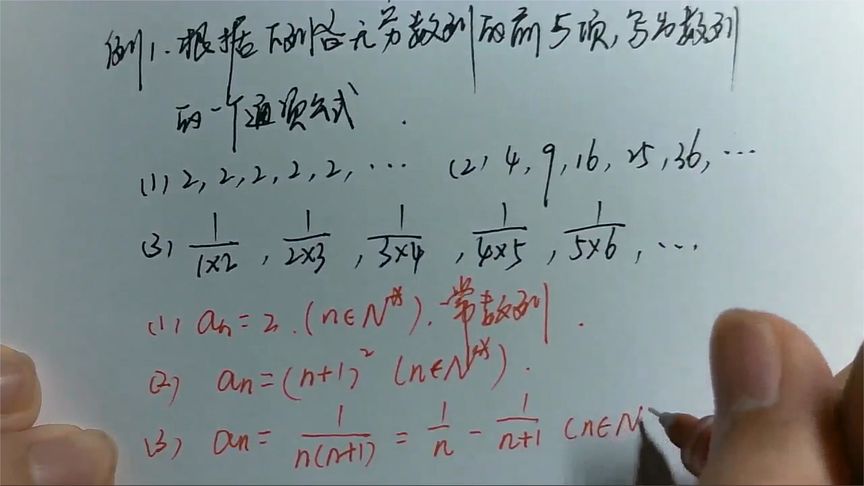 例1.根据下列各无穷数列的前5项,写出数列
的一个通项公式.
(1) 2, 2, 2, 2, 2, ⋯ (2) 4, 9, 16, 25, 36, ⋯
(3) 1/(1×2), 1/(2×3), 1/(3×4), 1/(4×5), 1/(5×6), ⋯
(1) aₙ=2.(n∈N*).常数列.
(2) aₙ=(n+1)² (n∈N*).
(3) aₙ= 1/(n(n+1)) = 1/n - 1/(n+1) (n∈N